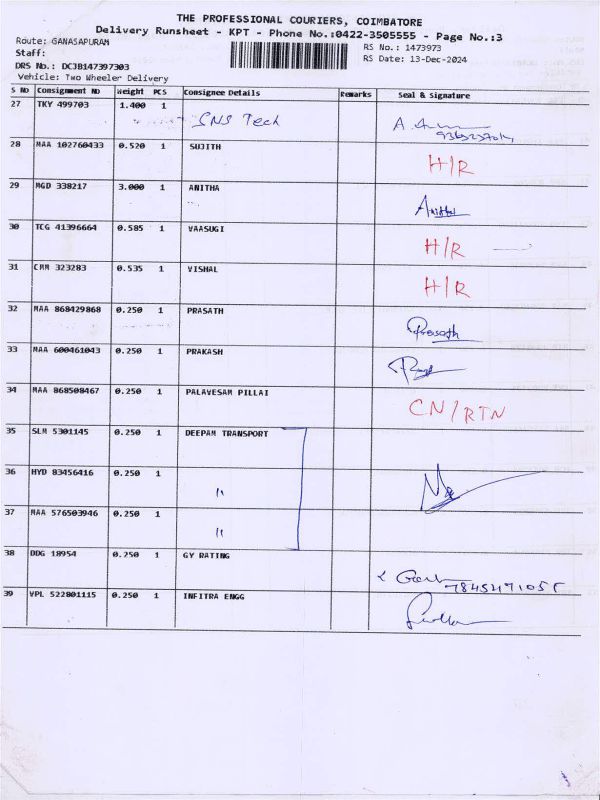 THE PROFESSIONAL COURIERS, COIMBATORE
Delivery Runsheet - KPT - Phone No.:0422-3505555 - Page No.:3
Route: GANASAPURAM
RS No.: 1473973
Staff:
RS Date: 13-Dec-2024
DRS No.: DCJB147397303
Vehicle: Two Wheeler Delivery
S NO Consignment NO Weight PCS Consignee Details Remarks Seal & Signature
27 TKY 499703 1.400 1 SNS Tech
28 MAA 102760433 0.520 1 SUJITH H/R
29 MGD 338217 3.000 1 ANITHA Anitha
30 TCG 41396664 0.585 1 VAASUGI H/R
31 CMM 323283 0.535 1 VISHAL H/R
32 MAA 868429868 0.250 1 PRASATH Prasath
33 MAA 600461043 0.250 1 PRAKASH
34 MAA 868508467 0.250 1 PALAVESAM PILLAI CN/RTN
35 SLM 5301145 0.250 1 DEEPAM TRANSPORT
36 HYD 83456416 0.250 1 "
37 MAA 576503946 0.250 1 "
38 DDG 18954 0.250 1 GY RATING
39 VPL 522801115 0.250 1 INFITRA ENGG